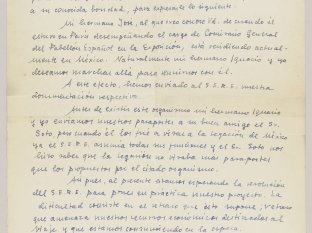 a su conocida bondad, para expresarle lo siguiente.
Mi hermano José, al que Vd. conoció de cuando él
estuvo en París desempeñando el cargo de Comisario General
del Pabellón Español en la Exposición, está residiendo actual-
mente en México. Naturalmente mi hermano Ignacio y yo
deseamos marchar allá para reunirnos con él.
A este efecto, hemos enviado al S.E.R.E. nuestra
documentación respectiva.
Antes de existir este organismo mi hermano Ignacio
y yo enviamos nuestros pasaportes a su buen amigo el Sr.
Soto para cuando él los fuese a visar a la legación de México
ya el S.E.R.E. asumía todas sus funciones y el Sr. Soto nos
hizo saber que la legación no visaba más pasaportes
que los propuestos por el citado organismo.
Así pues, al presente estamos esperando la resolución
del S.E.R.E. para poner en práctica nuestro proyecto. La
dificultad consiste en el atraso que esto supone, retraso
que amenaza nuestros recursos económicos destinados al
viaje y que estamos consumiendo en la espera.